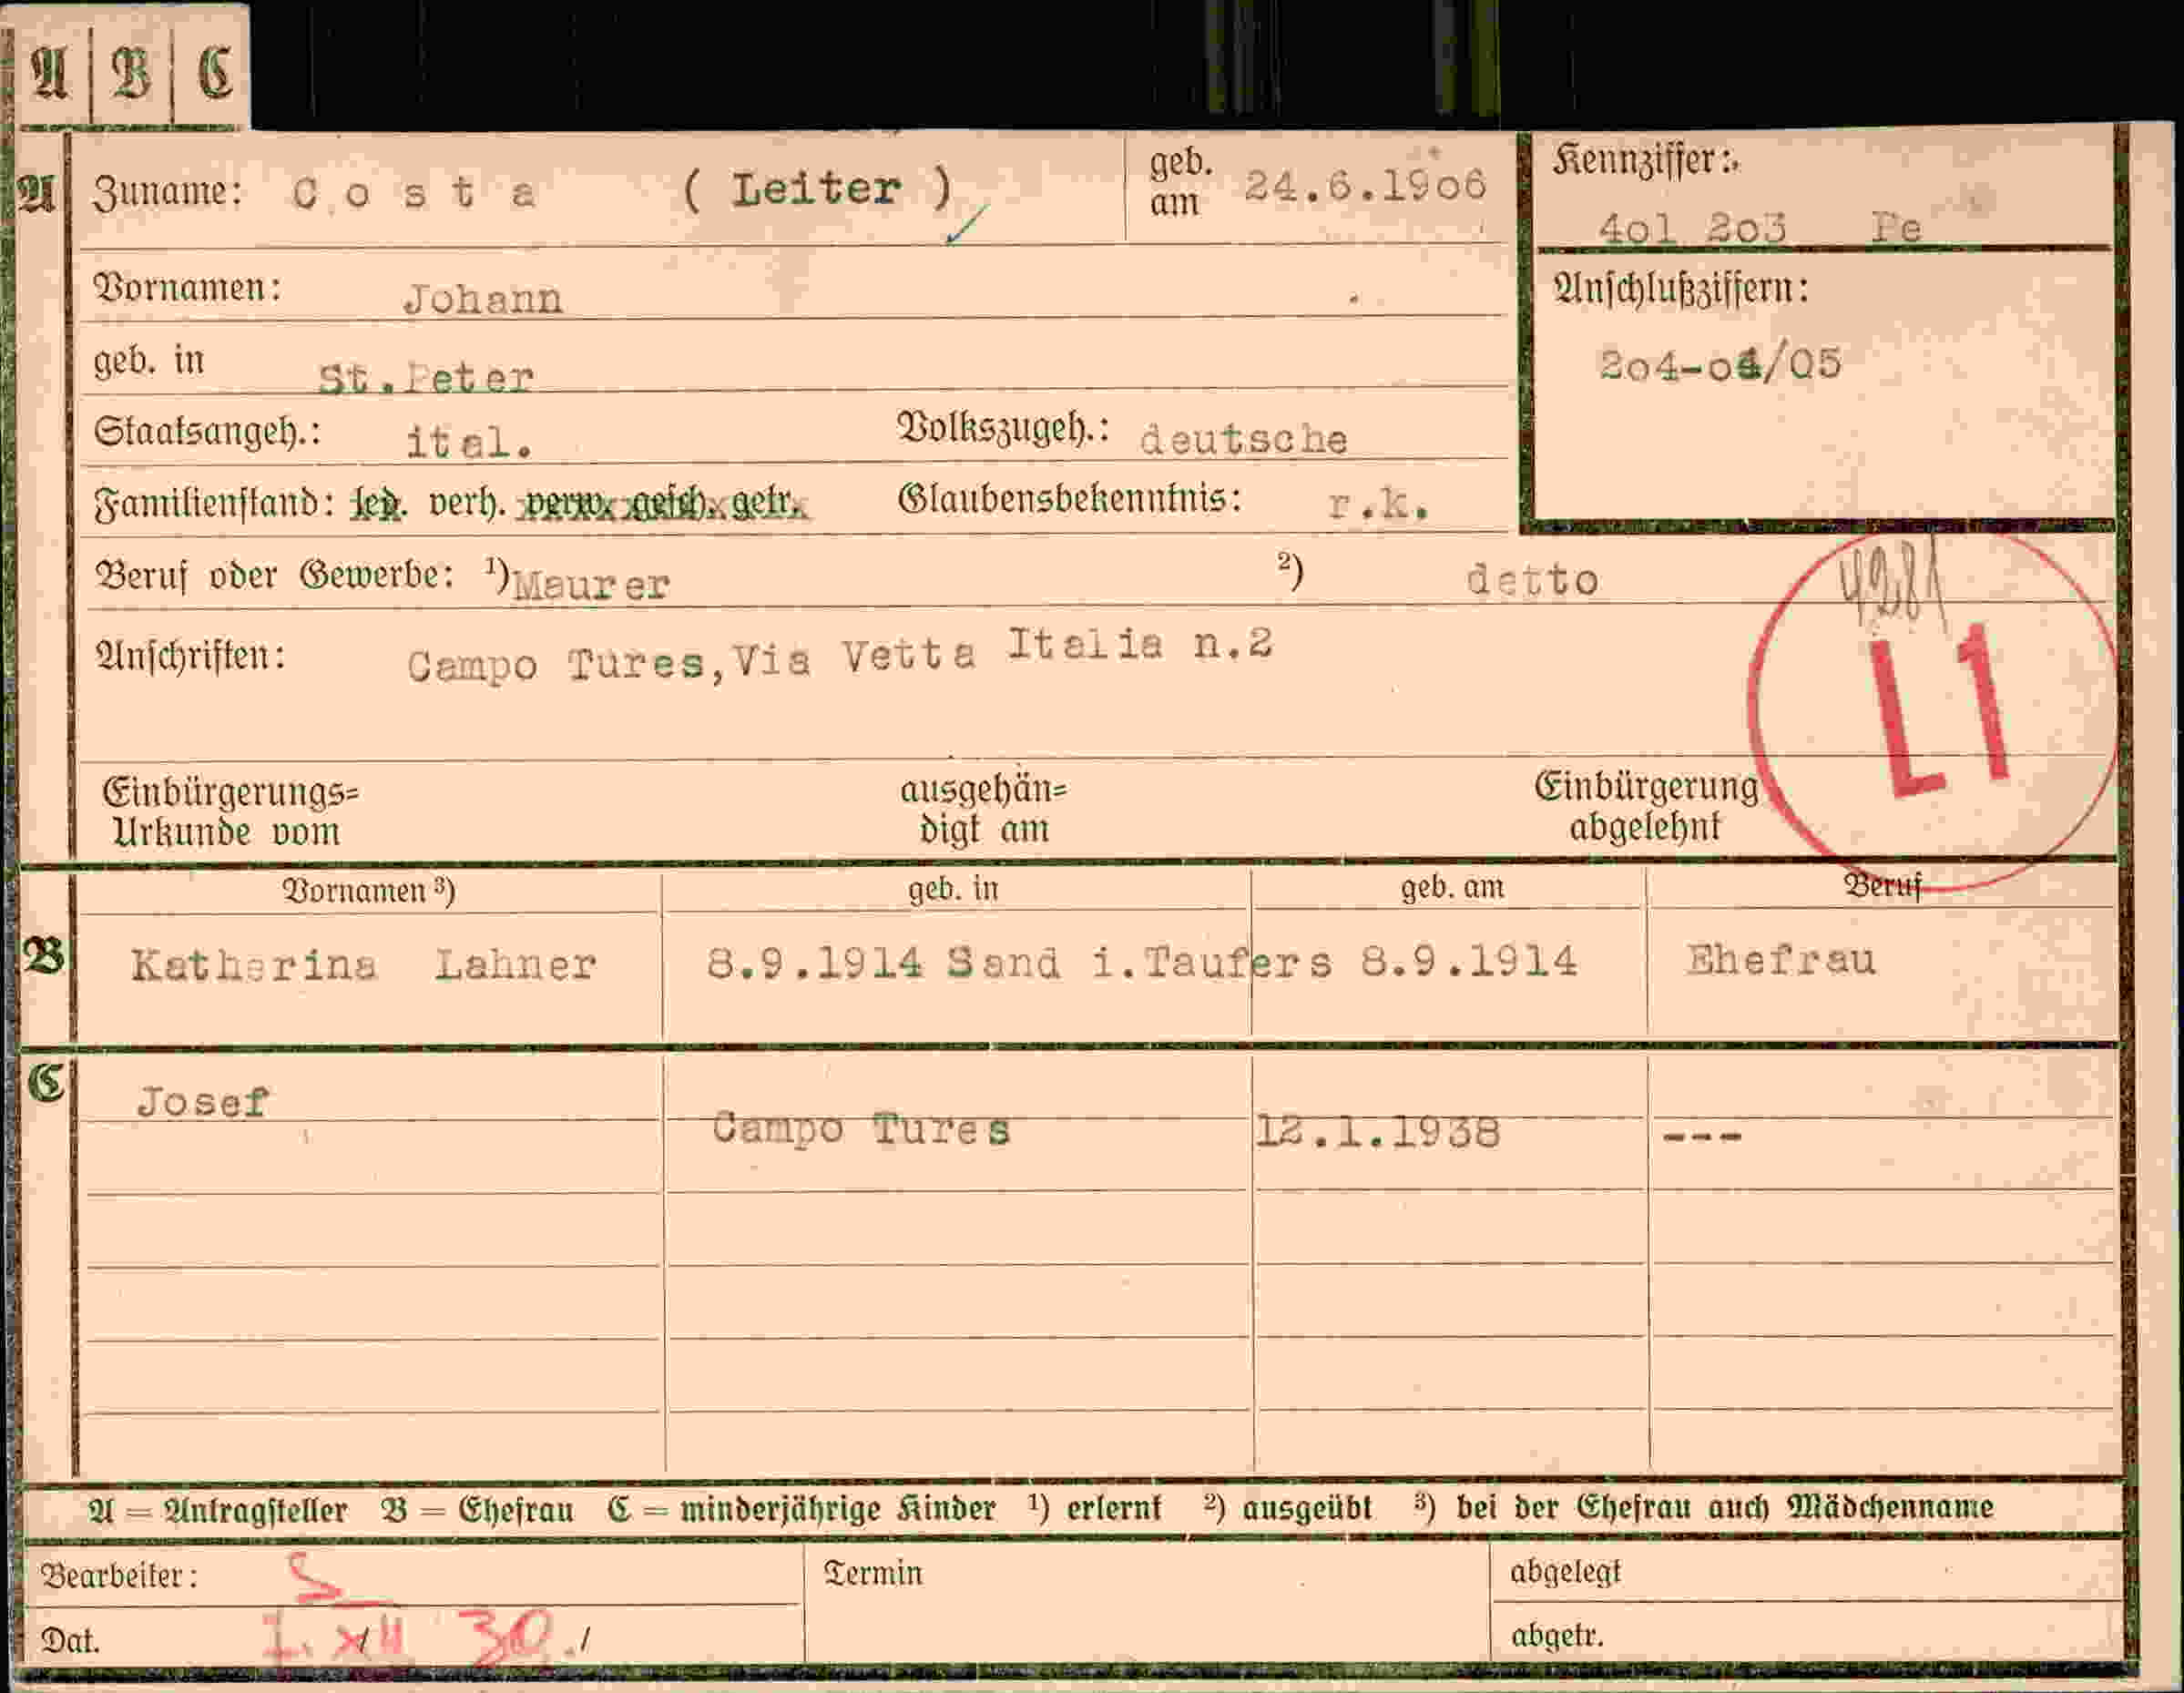 A B C
A Zuname: Costa (Leiter) geb. am 24.6.1906 Kennziffer:
4o1 2o3 Pe
Vornamen: Johann
Anschlußziffern:
2o4-o4/05
geb. in St.Peter
Staatsangeh.: ital. Volkszugeh.: deutsche
Familienstand: led. verh. verw. gesch. getr. Glaubensbekenntnis: r.k.
Beruf oder Gewerbe: ¹) Maurer ²) detto
Anschriften: Campo Tures, Via Vetta Italia n.2
L1
Einbürgerungs= ausgehän= Einbürgerung
Urkunde vom digt am abgelehnt
Vornamen ³) geb. in geb. am Beruf
B Katharina Lahner 8.9.1914 Sand i.Taufers 8.9.1914 Ehefrau
C Josef Campo Tures 12.1.1938 ---
A = Antragsteller B = Ehefrau C = minderjährige Kinder ¹) erlernt ²) ausgeübt ³) bei der Ehefrau auch Mädchenname
Bearbeiter: S Termin abgelegt
Dat. abgetr.